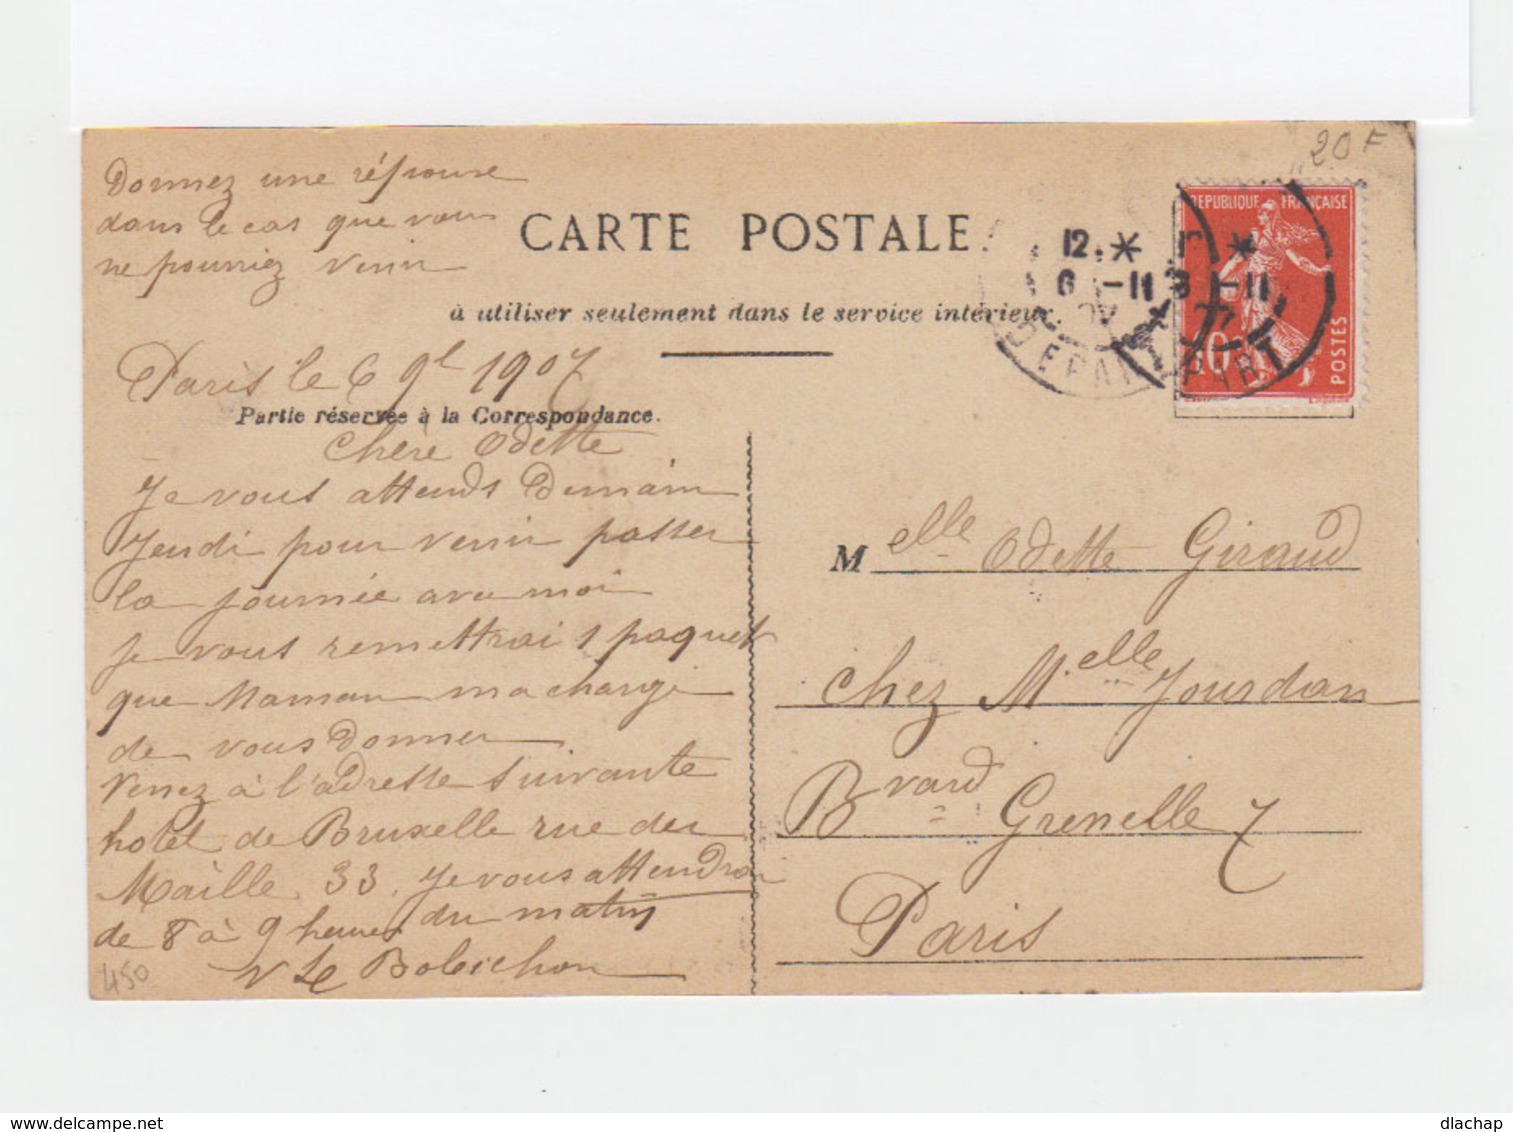 20F
Donnez une réponse
dans le cas que vous
ne pourriez venir
CARTE POSTALE.
à utiliser seulement dans le service intérieur.
REPUBLIQUE FRANÇAISE
POSTES
10
12. *
6 -11
07
DEPART
Paris le 6 9bre 1907
Partie réservée à la Correspondance.
Chère Odette
Je vous attends Demain
Jeudi pour venir passer
la journée avec moi
je vous remettrai 1 paquet
que Maman ma chargé
de vous Donner
Venez à l'adresse suivante
hotel de Bruxelle rue du
Maille 33. Je vous attendrai
de 8 à 9 heures du matin
V Le Bolsichon
450
Melle Odette Giraud
chez Melle Jourdan
Bvard Grenelle 7
Paris
www.delcampe.net
dlachap